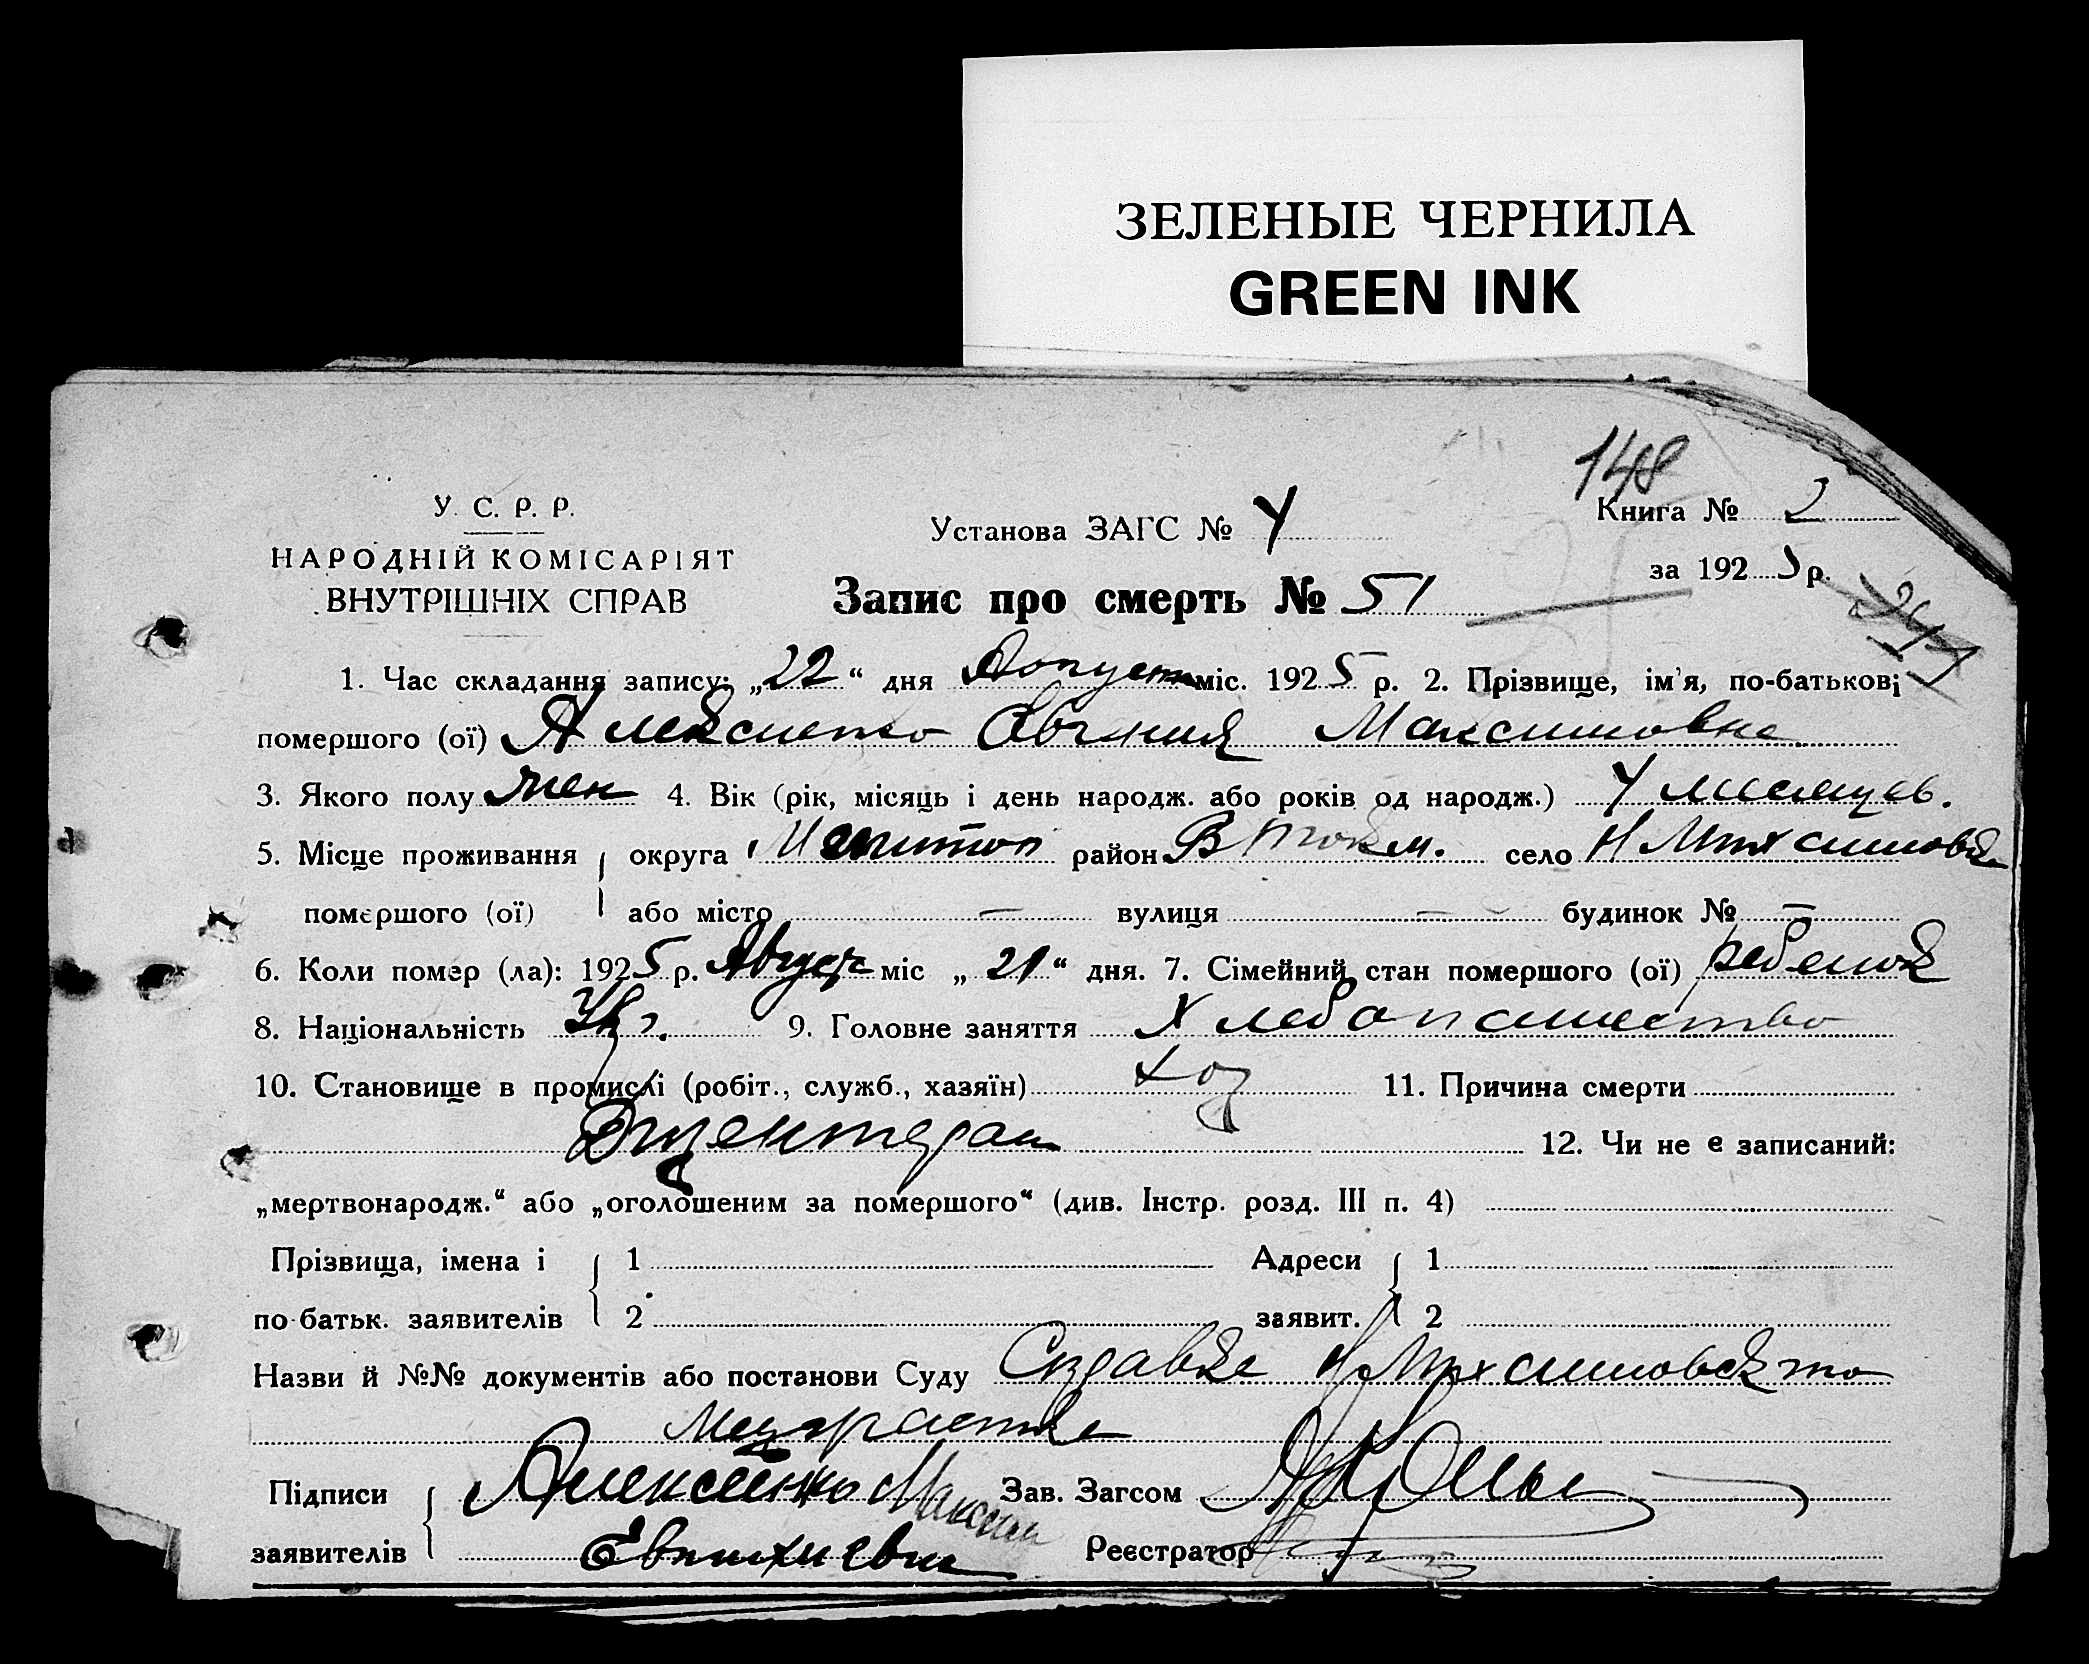 ЗЕЛЕНЫЕ ЧЕРНИЛА
GREEN INK
148
У. С. Р. Р.
НАРОДНІЙ КОМІСАРІЯТ
ВНУТРІШНІХ СПРАВ
Установа ЗАГС № 4
Книга № 2
за 1925 р.
Запис про смерть № 51
1. Час складання запису: „22“ дня Августа міс. 1925 р. 2. Прізвище, ім'я, по-батькові
помершого (ої) Алексиенко Максимовна
3. Якого полу жен 4. Вік (рік, місяць і день народж. або років од народж.) 4 месяцев.
5. Місце проживання округа Мелитоп район В Токм. село
помершого (ої) або місто — вулиця — будинок № —
6. Коли помер (ла): 1925 р. Август міс „21“ дня. 7. Сімейний стан помершого (ої) ребенок
8. Національність Укр. 9. Головне заняття Хлебопашество
10. Становище в промислі (робіт., служб., хазяїн) хоз 11. Причина смерти
Дизентерия 12. Чи не є записаний:
„мертвонародж.“ або „оголошеним за помершого“ (див. Інстр. розд. III п. 4)
Прізвища, імена і 1 Адреси 1
по-батьк. заявителів 2 заявит. 2
Назви й №№ документів або постанови Суду Справка
Підписи Алексеенко Максим Зав. Загсом
заявителів Реєстратор